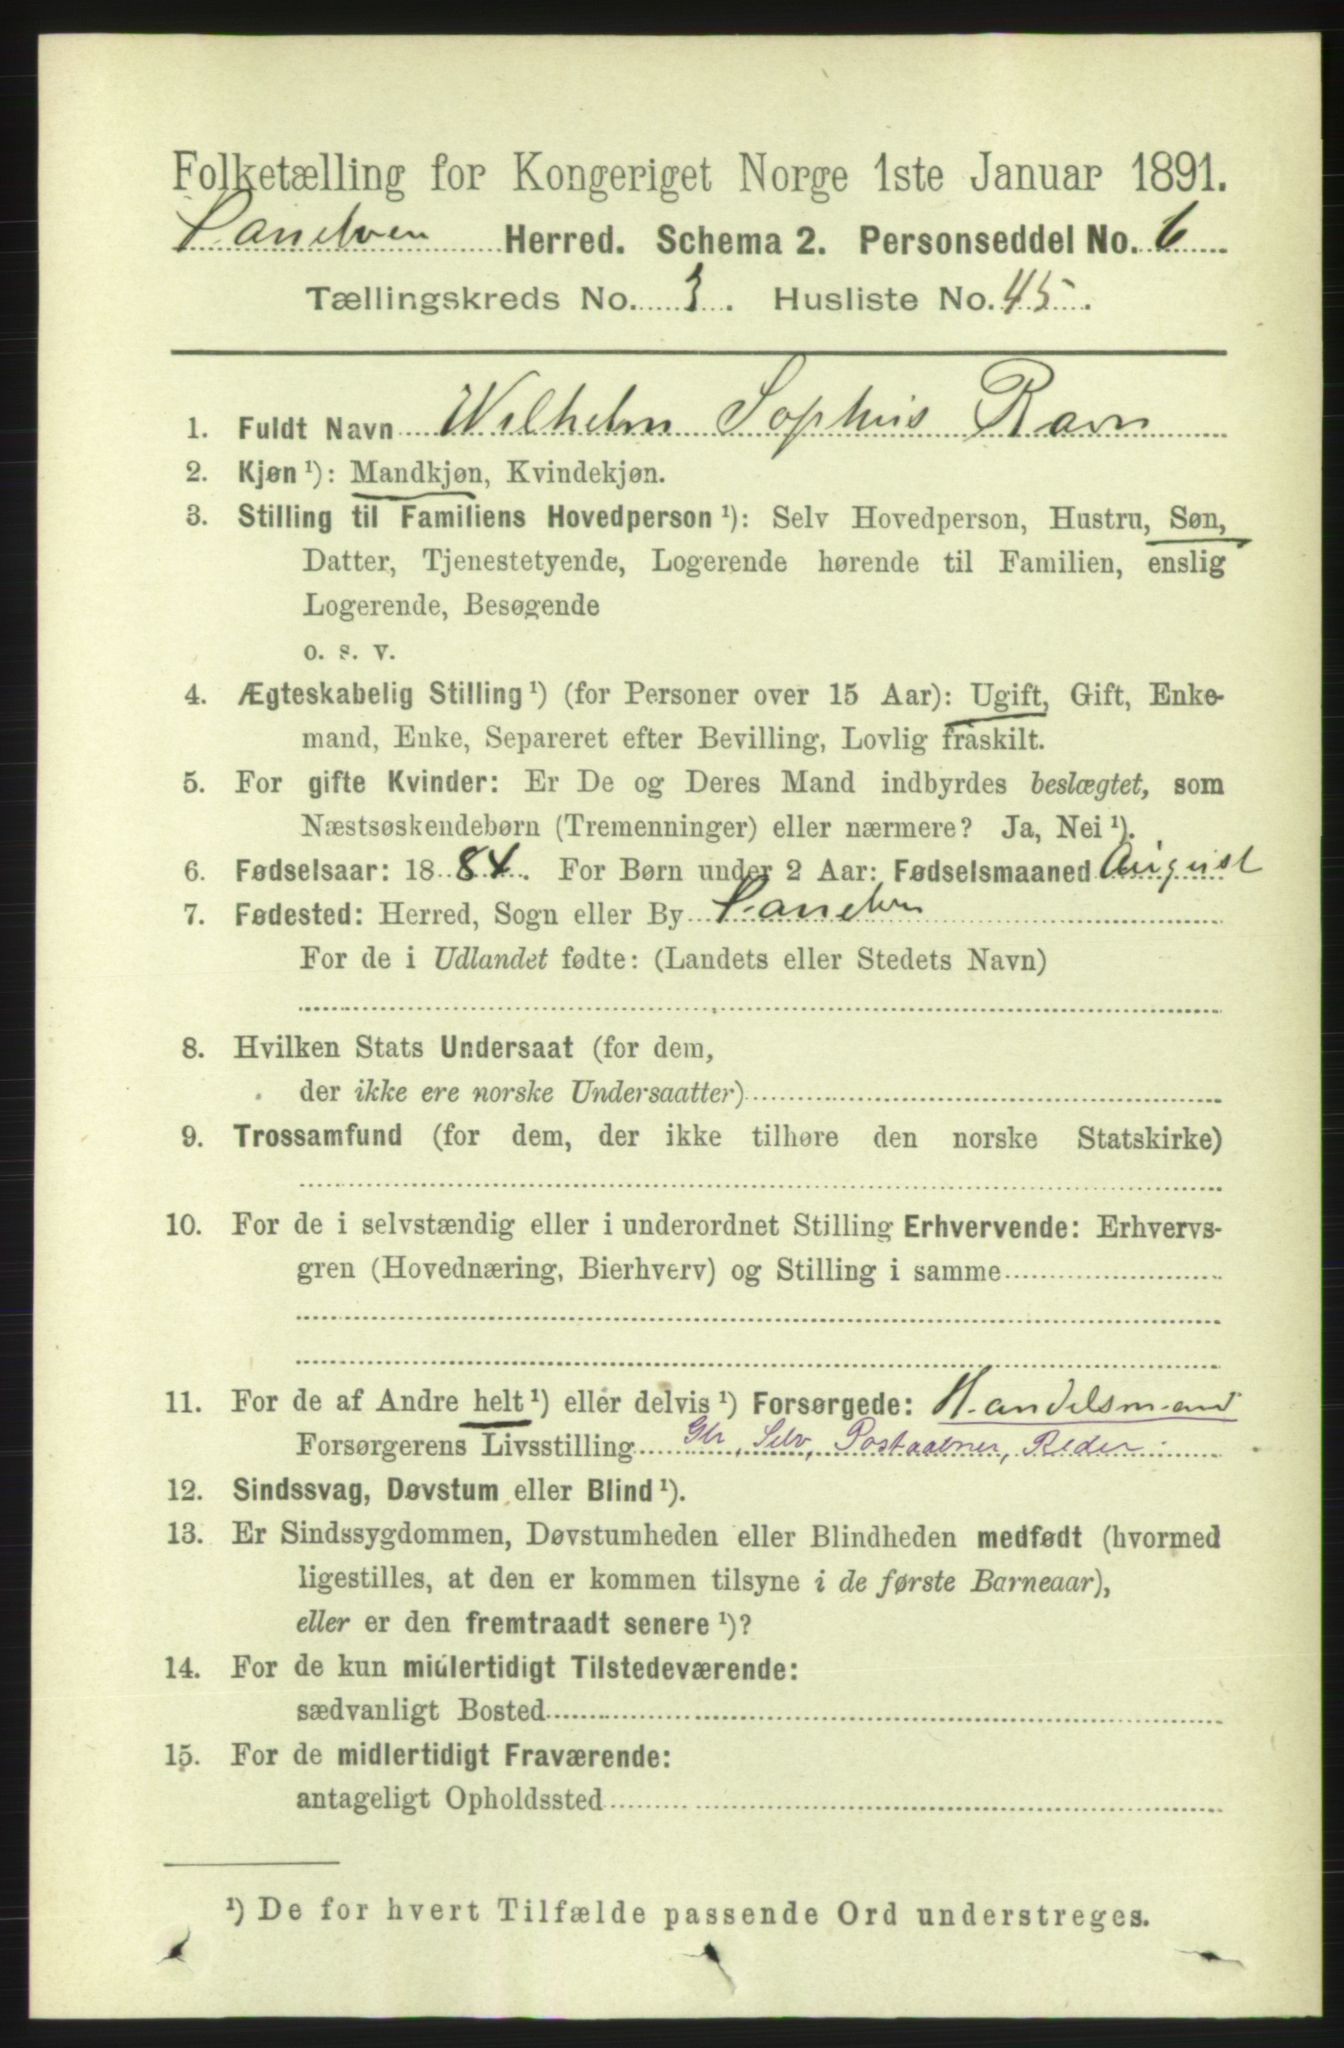 Folketælling for Kongeriget Norge 1ste Januar 1891.
Sandviken Herred. Schema 2. Personseddel No. 6
Tællingskreds No. 3. Husliste No. 45.
1. Fuldt Navn Wilhelm Sophus Ravn
2. Kjøn ¹): Mandkjøn, Kvindekjøn.
3. Stilling til Familiens Hovedperson ¹): Selv Hovedperson, Hustru, Søn,
Datter, Tjenestetyende, Logerende hørende til Familien, enslig
Logerende, Besøgende
o. s. v.
4. Ægteskabelig Stilling ¹) (for Personer over 15 Aar): Ugift, Gift, Enke-
mand, Enke, Separeret efter Bevilling, Lovlig fraskilt.
5. For gifte Kvinder: Er De og Deres Mand indbyrdes beslægtet, som
Næstsøskendebørn (Tremenninger) eller nærmere? Ja, Nei ¹).
6. Fødselsaar: 1884. For Børn under 2 Aar: Fødselsmaaned August
7. Fødested: Herred, Sogn eller By
For de i Udlandet fødte: (Landets eller Stedets Navn)
8. Hvilken Stats Undersaat (for dem,
der ikke ere norske Undersaatter)
9. Trossamfund (for dem, der ikke tilhøre den norske Statskirke)
10. For de i selvstændig eller i underordnet Stilling Erhvervende: Erhvervs-
gren (Hovednæring, Bierhverv) og Stilling i samme
11. For de af Andre helt ¹) eller delvis ¹) Forsørgede: Handelsmand
Forsørgerens Livsstilling Gbr, Selv, Postaabner, Reder
12. Sindssvag, Døvstum eller Blind ¹).
13. Er Sindssygdommen, Døvstumheden eller Blindheden medfødt (hvormed
ligestilles, at den er kommen tilsyne i de første Barneaar),
eller er den fremtraadt senere ¹)?
14. For de kun midlertidigt Tilstedeværende:
sædvanligt Bosted
15. For de midlertidigt Fraværende:
antageligt Opholdssted
¹) De for hvert Tilfælde passende Ord understreges.